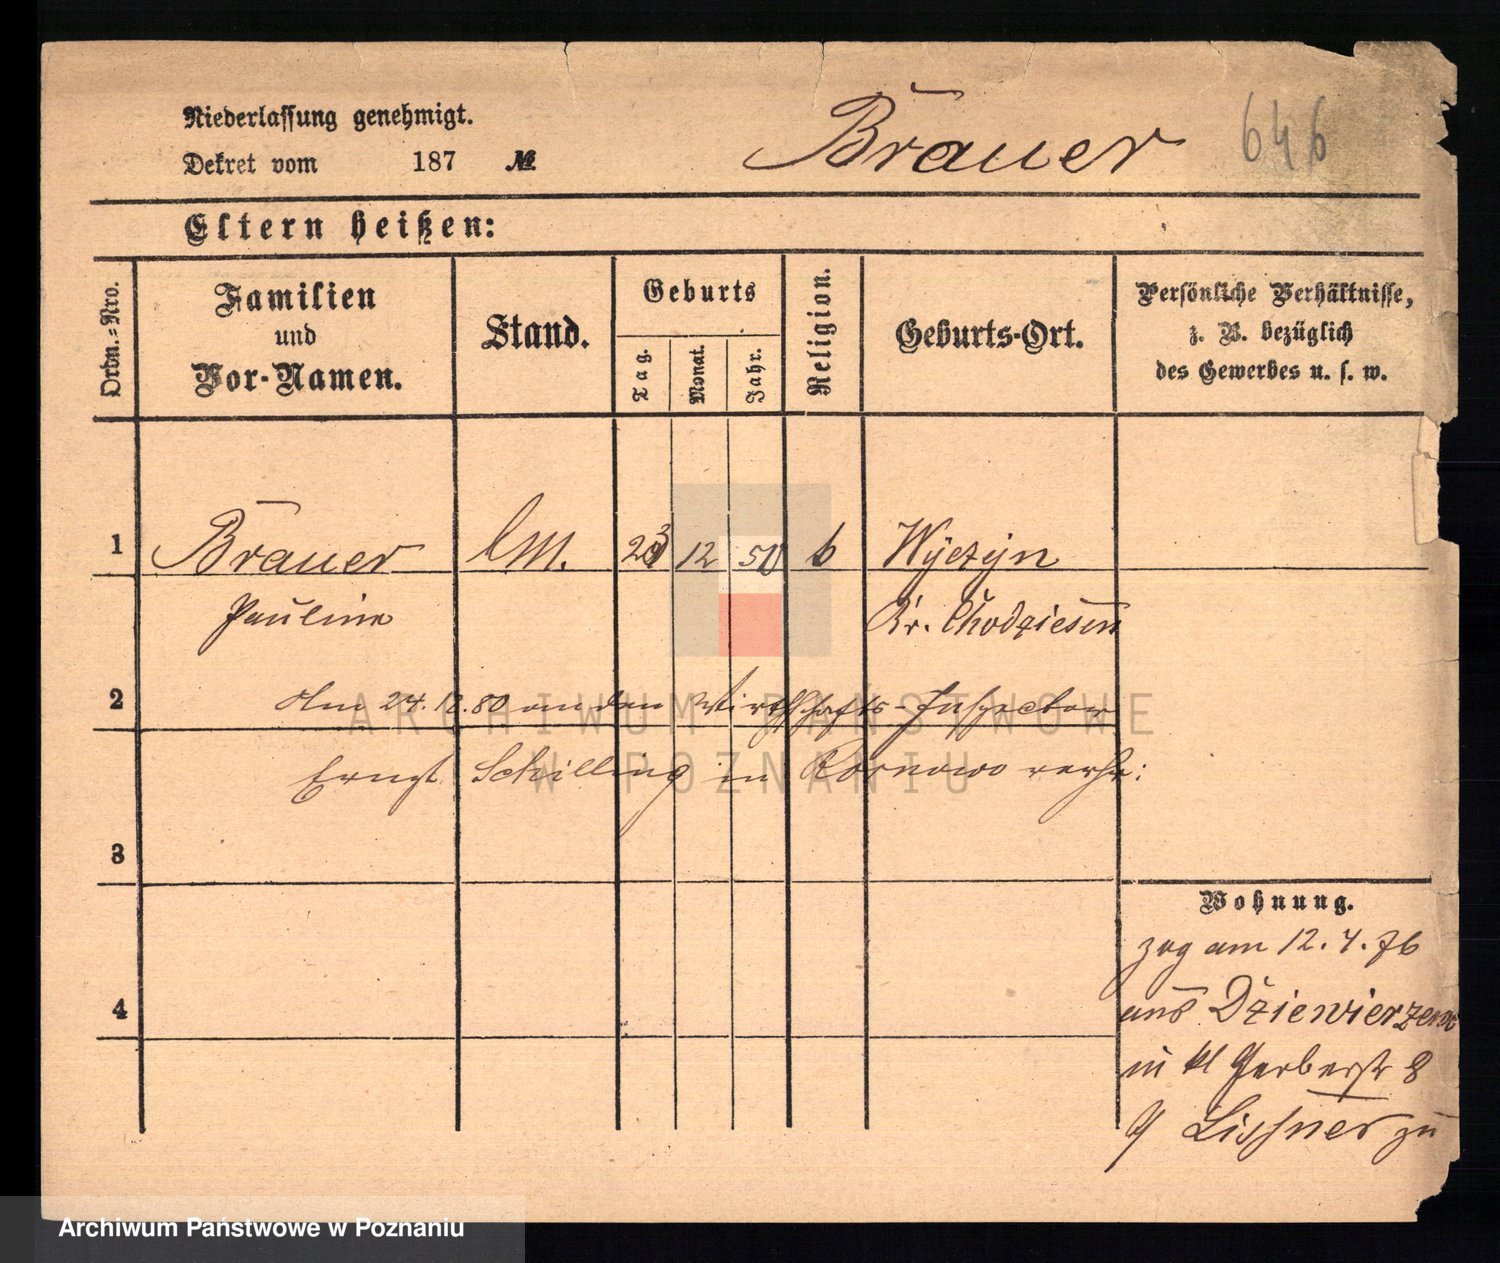 Niederlassung genehmigt.
Dekret vom 187 №
Brauer
646
Eltern heißen:
Ordn.-Nro.
Familien
und
Vor-Namen.
Stand.
Geburts
Tag.
Monat.
Jahr.
Religion.
Geburts-Ort.
Persönliche Verhältnisse,
z. B. bezüglich
des Gewerbes u. s. w.
1 Brauer 12 Wyczyn
Pauline Kr. Chodziesen
2 Am 24. 12. 80 an den Wirthschafts-Inspector
Ernst Schilling in verh:
3
Wohnung.
zog am 12. 4. 76
4
aus Dziewierzewo
in kl Gerberstr 8
Lissner zu
ARCHIWUM PAŃSTWOWE
W POZNANIU
Archiwum Państwowe w Poznaniu